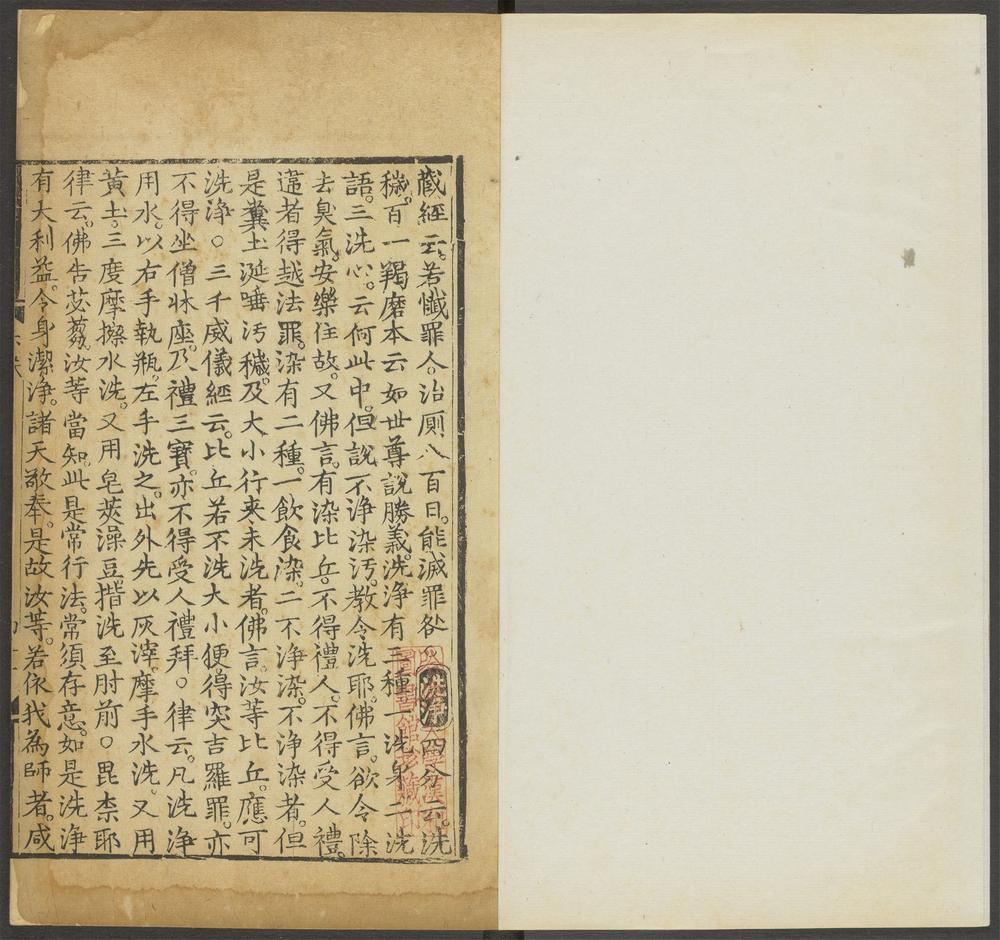 藏經云。若懺罪人。治厠八百日。能滅罪咎 洗淨 四分云。洗
穢。百一羯磨本云如世尊說勝義。洗淨有三種一洗身二洗
語。三洗心。云何此中。但說不淨染污。教令洗耶。佛言。欲令除
去臭氣。安樂住故。又佛言。有染比丘。不得禮人。不得受人禮。
違者得越法罪。染有二種。一飲食染。二不淨染。不淨染者。但
是糞土涎唾污穢。及大小行來未洗者。佛言。汝等比丘。應可
洗淨。○三千威儀經云。比丘若不洗大小便。得突吉羅罪。亦
不得坐僧牀座。及禮三寶。亦不得受人禮拜。○律云。凡洗淨
用水。以右手執瓶。左手洗之。出外先以灰滓。摩手水洗。又用
黃土。三度摩擦水洗。又用皂莢澡豆。揩洗至肘前。○毘柰耶
律云。佛告苾蒭。汝等當知。此是常行法。常須存意。如是洗淨
有大利益。令身潔淨。諸天敬奉。是故汝等。若依我為師者。咸